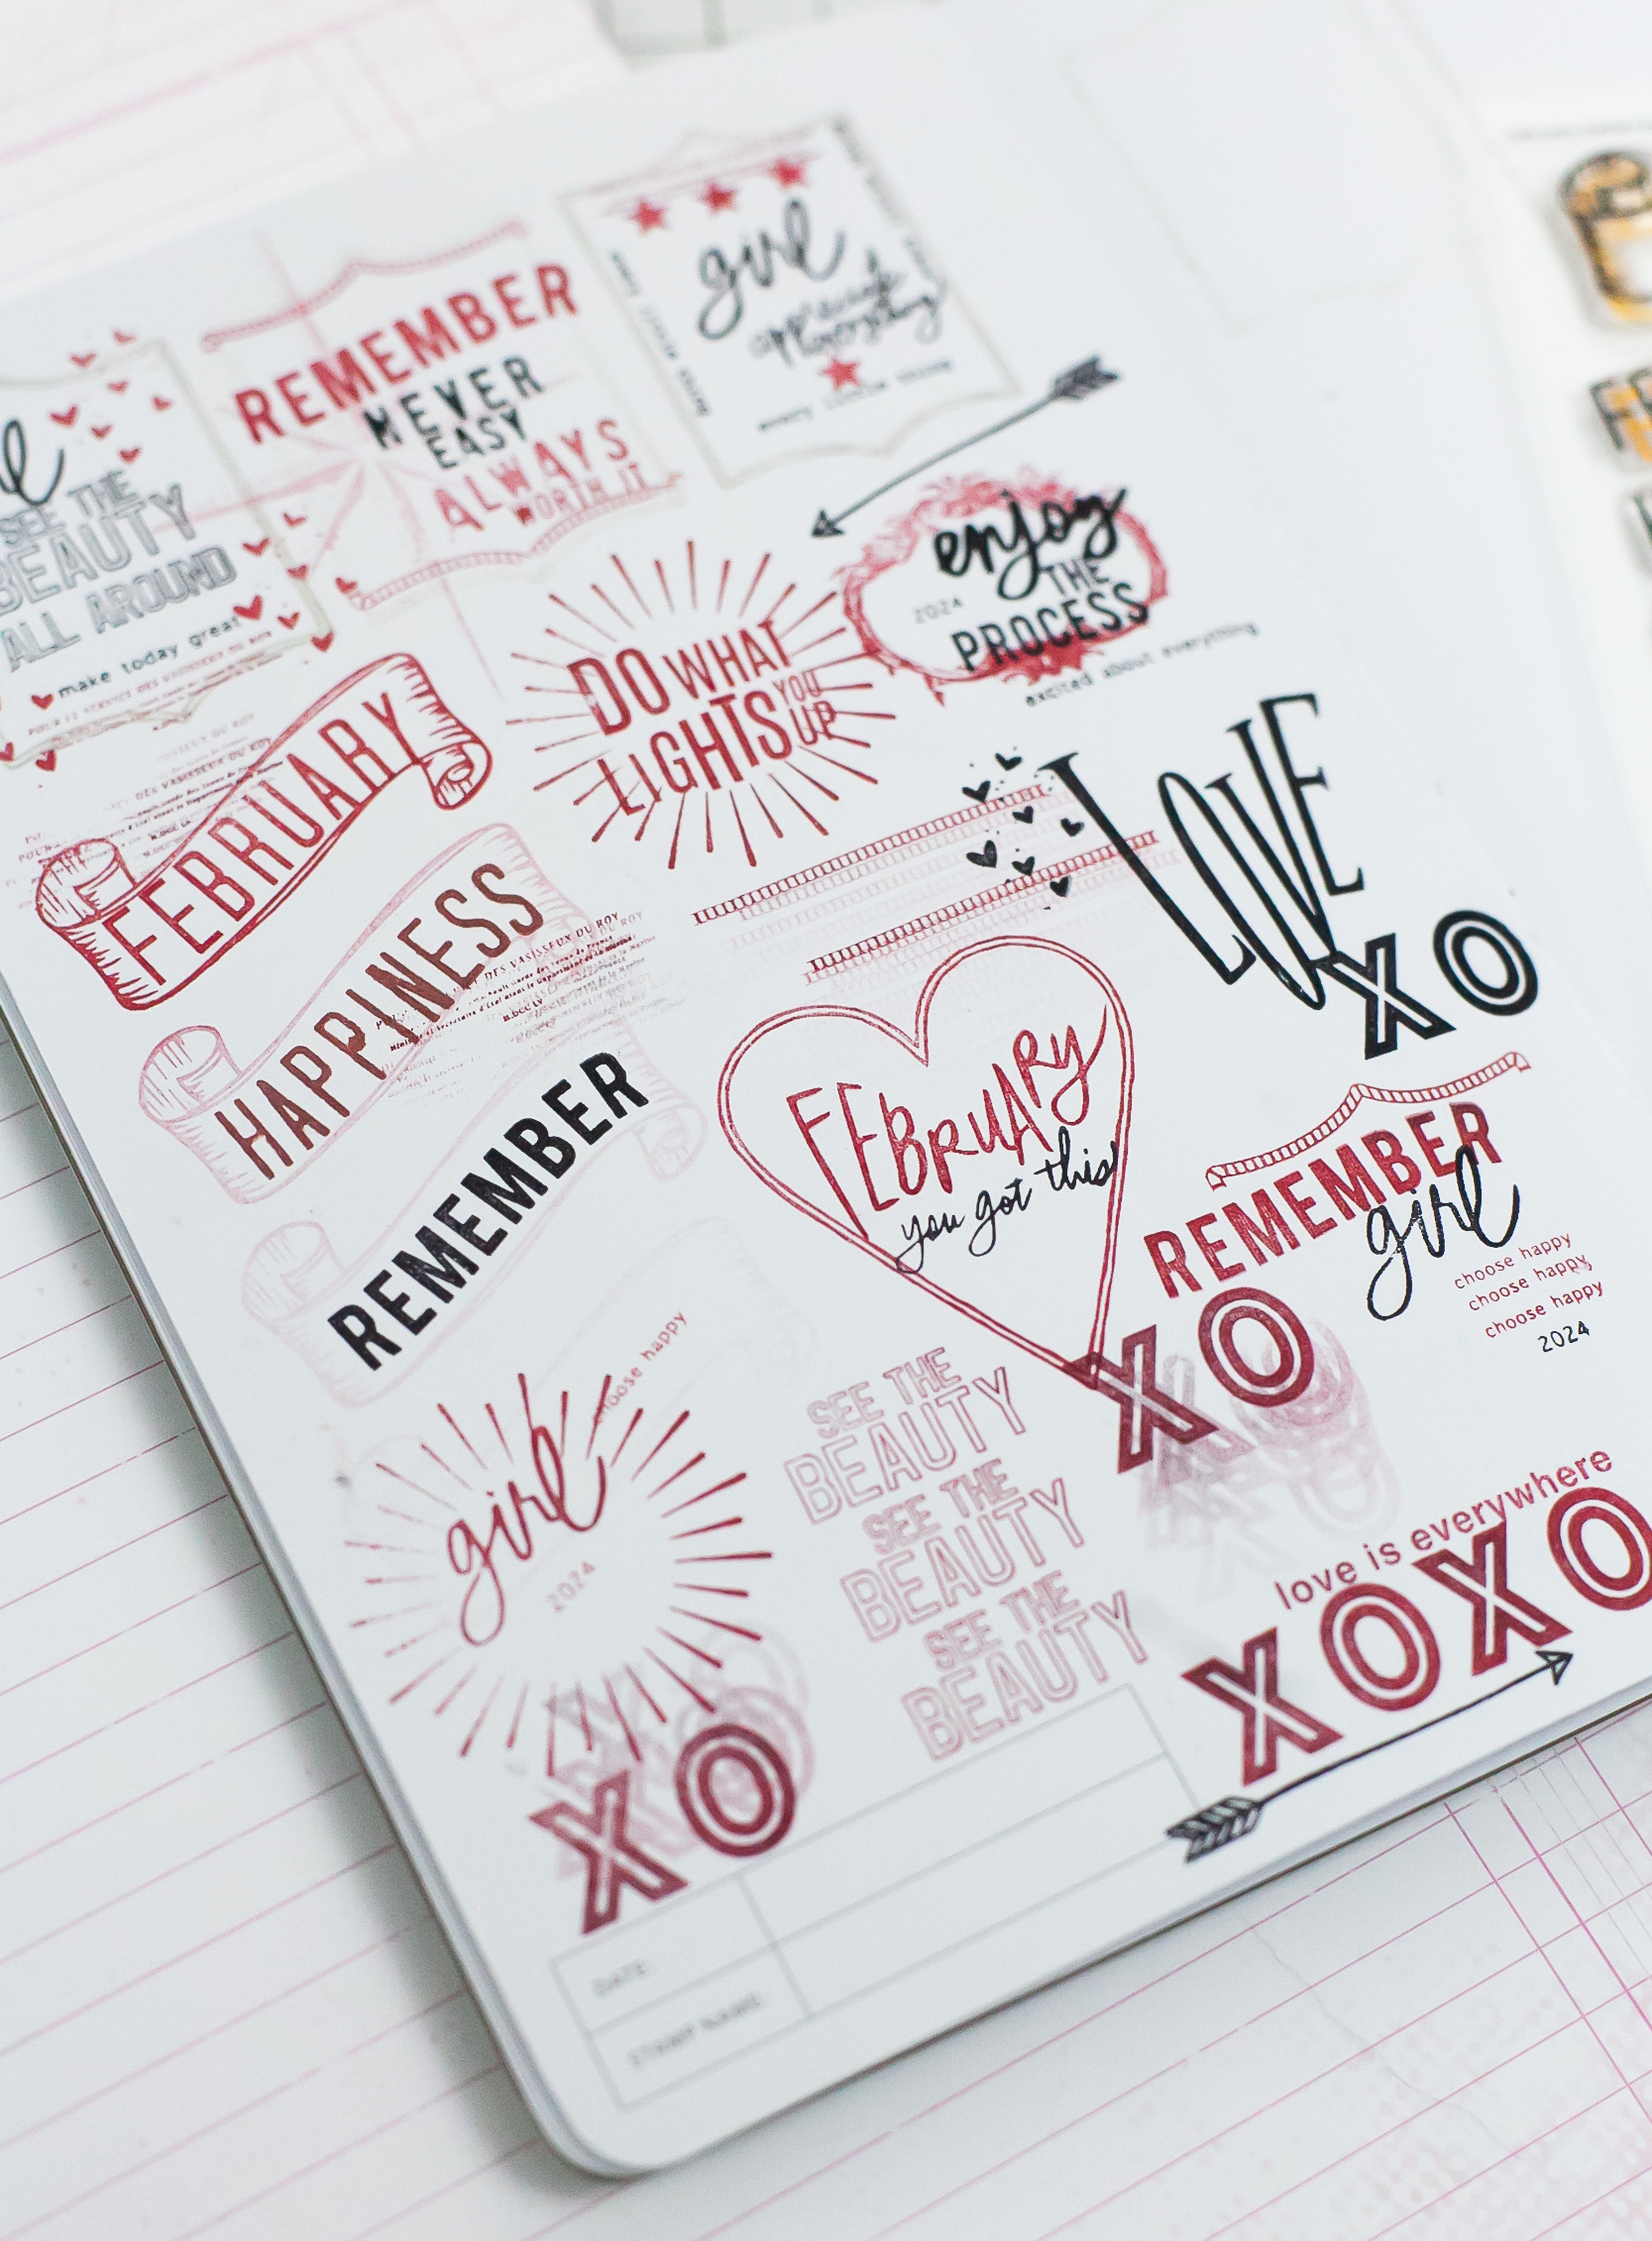 girl
REMEMBER
NEVER
EASY
ALWAYS
WORTH IT
SEE THE
BEAUTY
ALL AROUND
make today great
enjoy
THE
2024
PROCESS
excited about everything
DO WHAT
LIGHTS YOU UP
FEBRUARY
DES VAISSEUX DU ROY
HAPPINESS
DES VAISSEUX DU ROY
M.DCC LV
REMEMBER
LOVE
XO
FEBRUARY
you got this
REMEMBER
girl
choose happy
choose happy
choose happy
2024
XO
choose happy
girl
2024
XO
SEE THE
BEAUTY
SEE THE
BEAUTY
SEE THE
BEAUTY
love is everywhere
XOXO
DATE:
STAMP NAME: